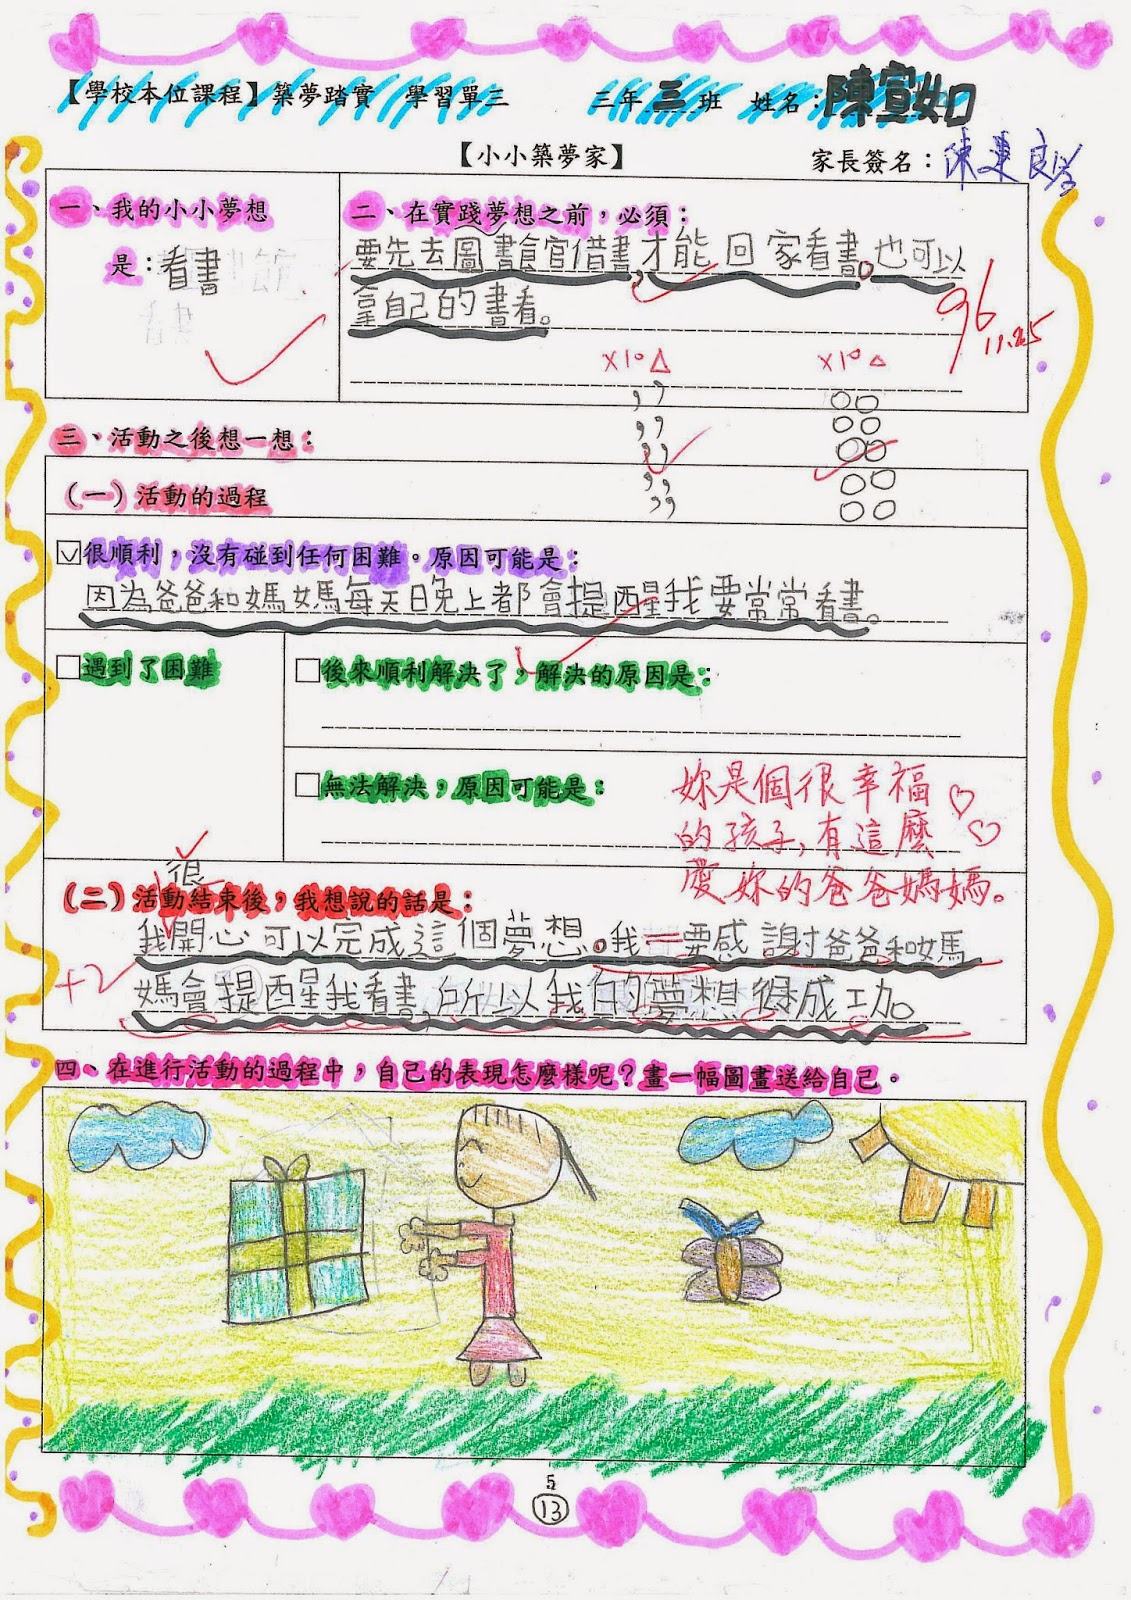 【學校本位課程】築夢踏實 學習單三 三年三班 姓名：陳宣如
【小小築夢家】 家長簽名：陳
一、我的小小夢想
是：看書
二、在實踐夢想之前，必須：
要先去圖書館借書,才能回家看書。也可以
拿自己的書看。
96
11.25
×10△ ×10△
三、活動之後想一想：
（一）活動的過程
很順利，沒有碰到任何困難。原因可能是：
因為爸爸和媽媽每天晚上都會提醒我要常常看書。
遇到了困難
後來順利解決了，解決的原因是：
無法解決，原因可能是：
妳是個很幸福
的孩子,有這麼
愛妳的爸爸媽媽。
（二）活動結束後，我想說的話是：
很
我開心可以完成這個夢想。我要感謝爸爸和媽
+2
媽會提醒我看書,所以我的夢想很成功。
四、在進行活動的過程中，自己的表現怎麼樣呢？畫一幅圖畫送給自己。
5
13